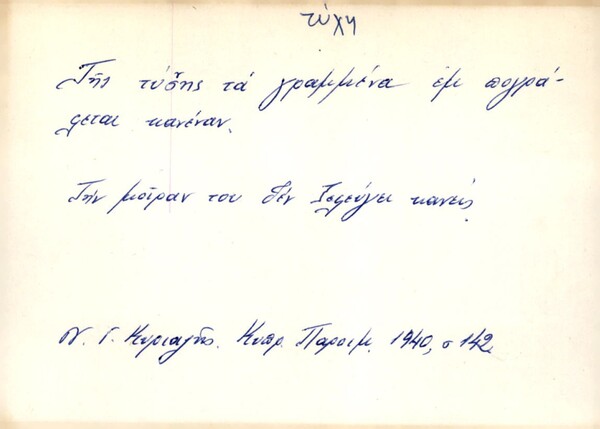 τύχη
Τῆς τύσης τά γραμμένα ἐμ πογρά-
φεται κανέναν.
Τήν μοῖραν του δέν ξεφεύγει κανείς
Ν. Γ. Κυριαζῆς. Κυπρ. Παροιμ. 1940, σ 142.